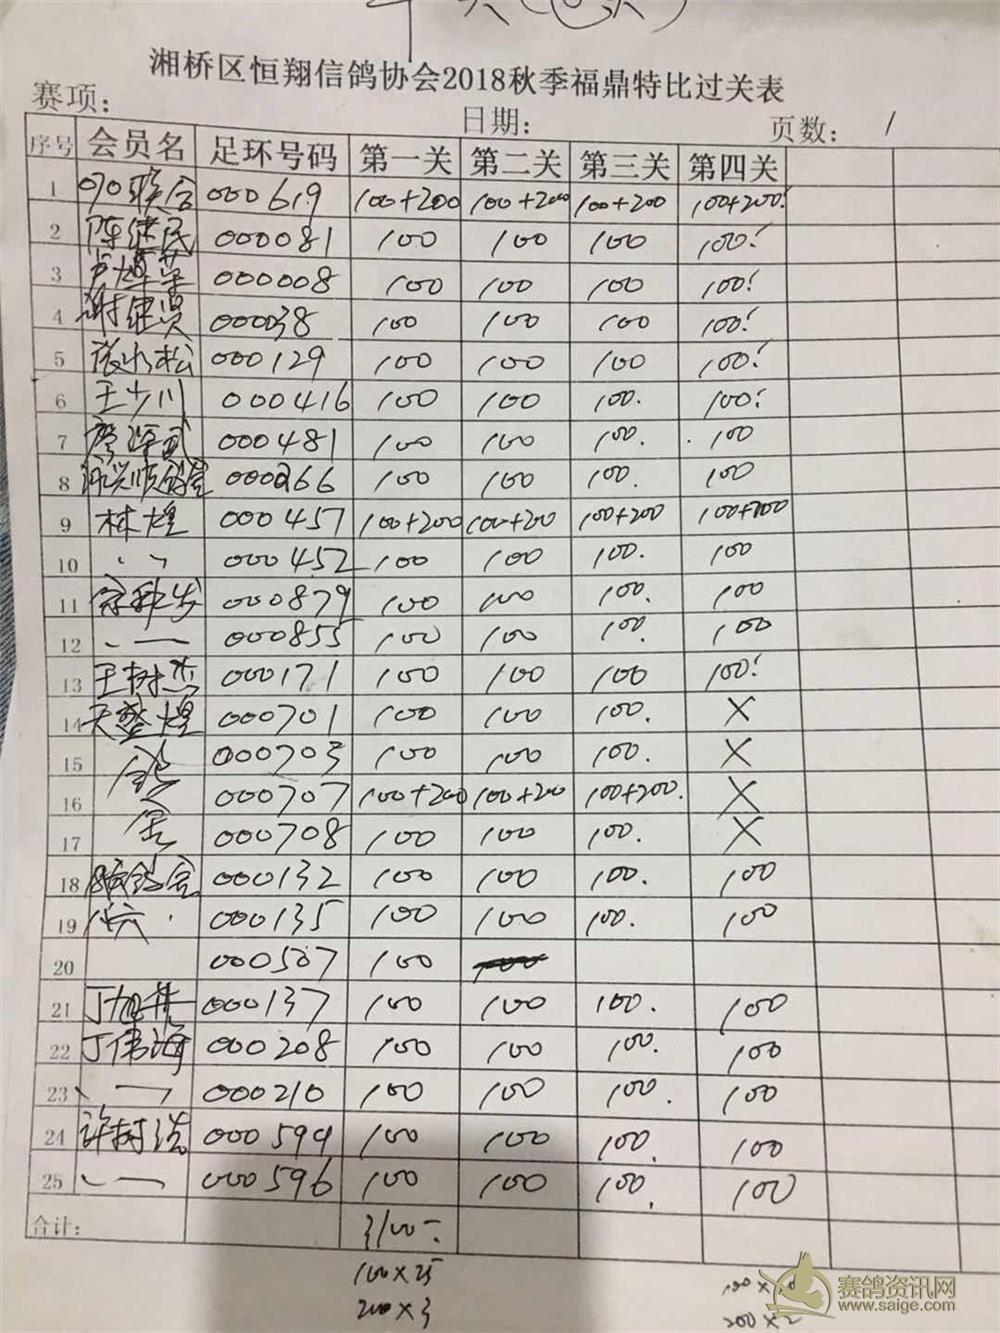 湘桥区恒翔信鸽协会2018秋季福鼎特比过关表
赛项: 日期: 页数: 1
序号 会员名 足环号码 第一关 第二关 第三关 第四关
1 090联合 000619 100+200 100+200 100+200 100+200!
2 陈继民 000081 100 100 100 100!
3 000008 100 100 100 100!
4 谢继贤 000038 100 100 100 100!
5 张水松 000129 100 100 100 100!
6 王少川 000416 100 100 100. 100!
7 000481 100 100 100. 100
8 000266 100 100 100. 100
9 林煌 000457 100+200 100+200 100+200 100+200
10 000452 100 100 100. 100
11 000879 100 100 100. 100
12 000855 100 100 100. 100
13 王树杰 000171 100 100 100 100!
14 000701 100 100 100. X
15 000703 100 100 100. X
16 000707 100+200 100+200 100+200. X
17 000708 100 100 100. X
18 000132 100 100 100. 100
19 000135 100 100 100. 100
20 000507 100
21 000137 100 100 100. 100
22 丁伟海 000208 100 100 100. 100
23 000210 100 100 100. 100
24 许树浩 000594 100 100 100. 100
25 000596 100 100 100. 100
合计: 3100-
100×25
200×3 200×2
赛鸽资讯网
www.saige.com